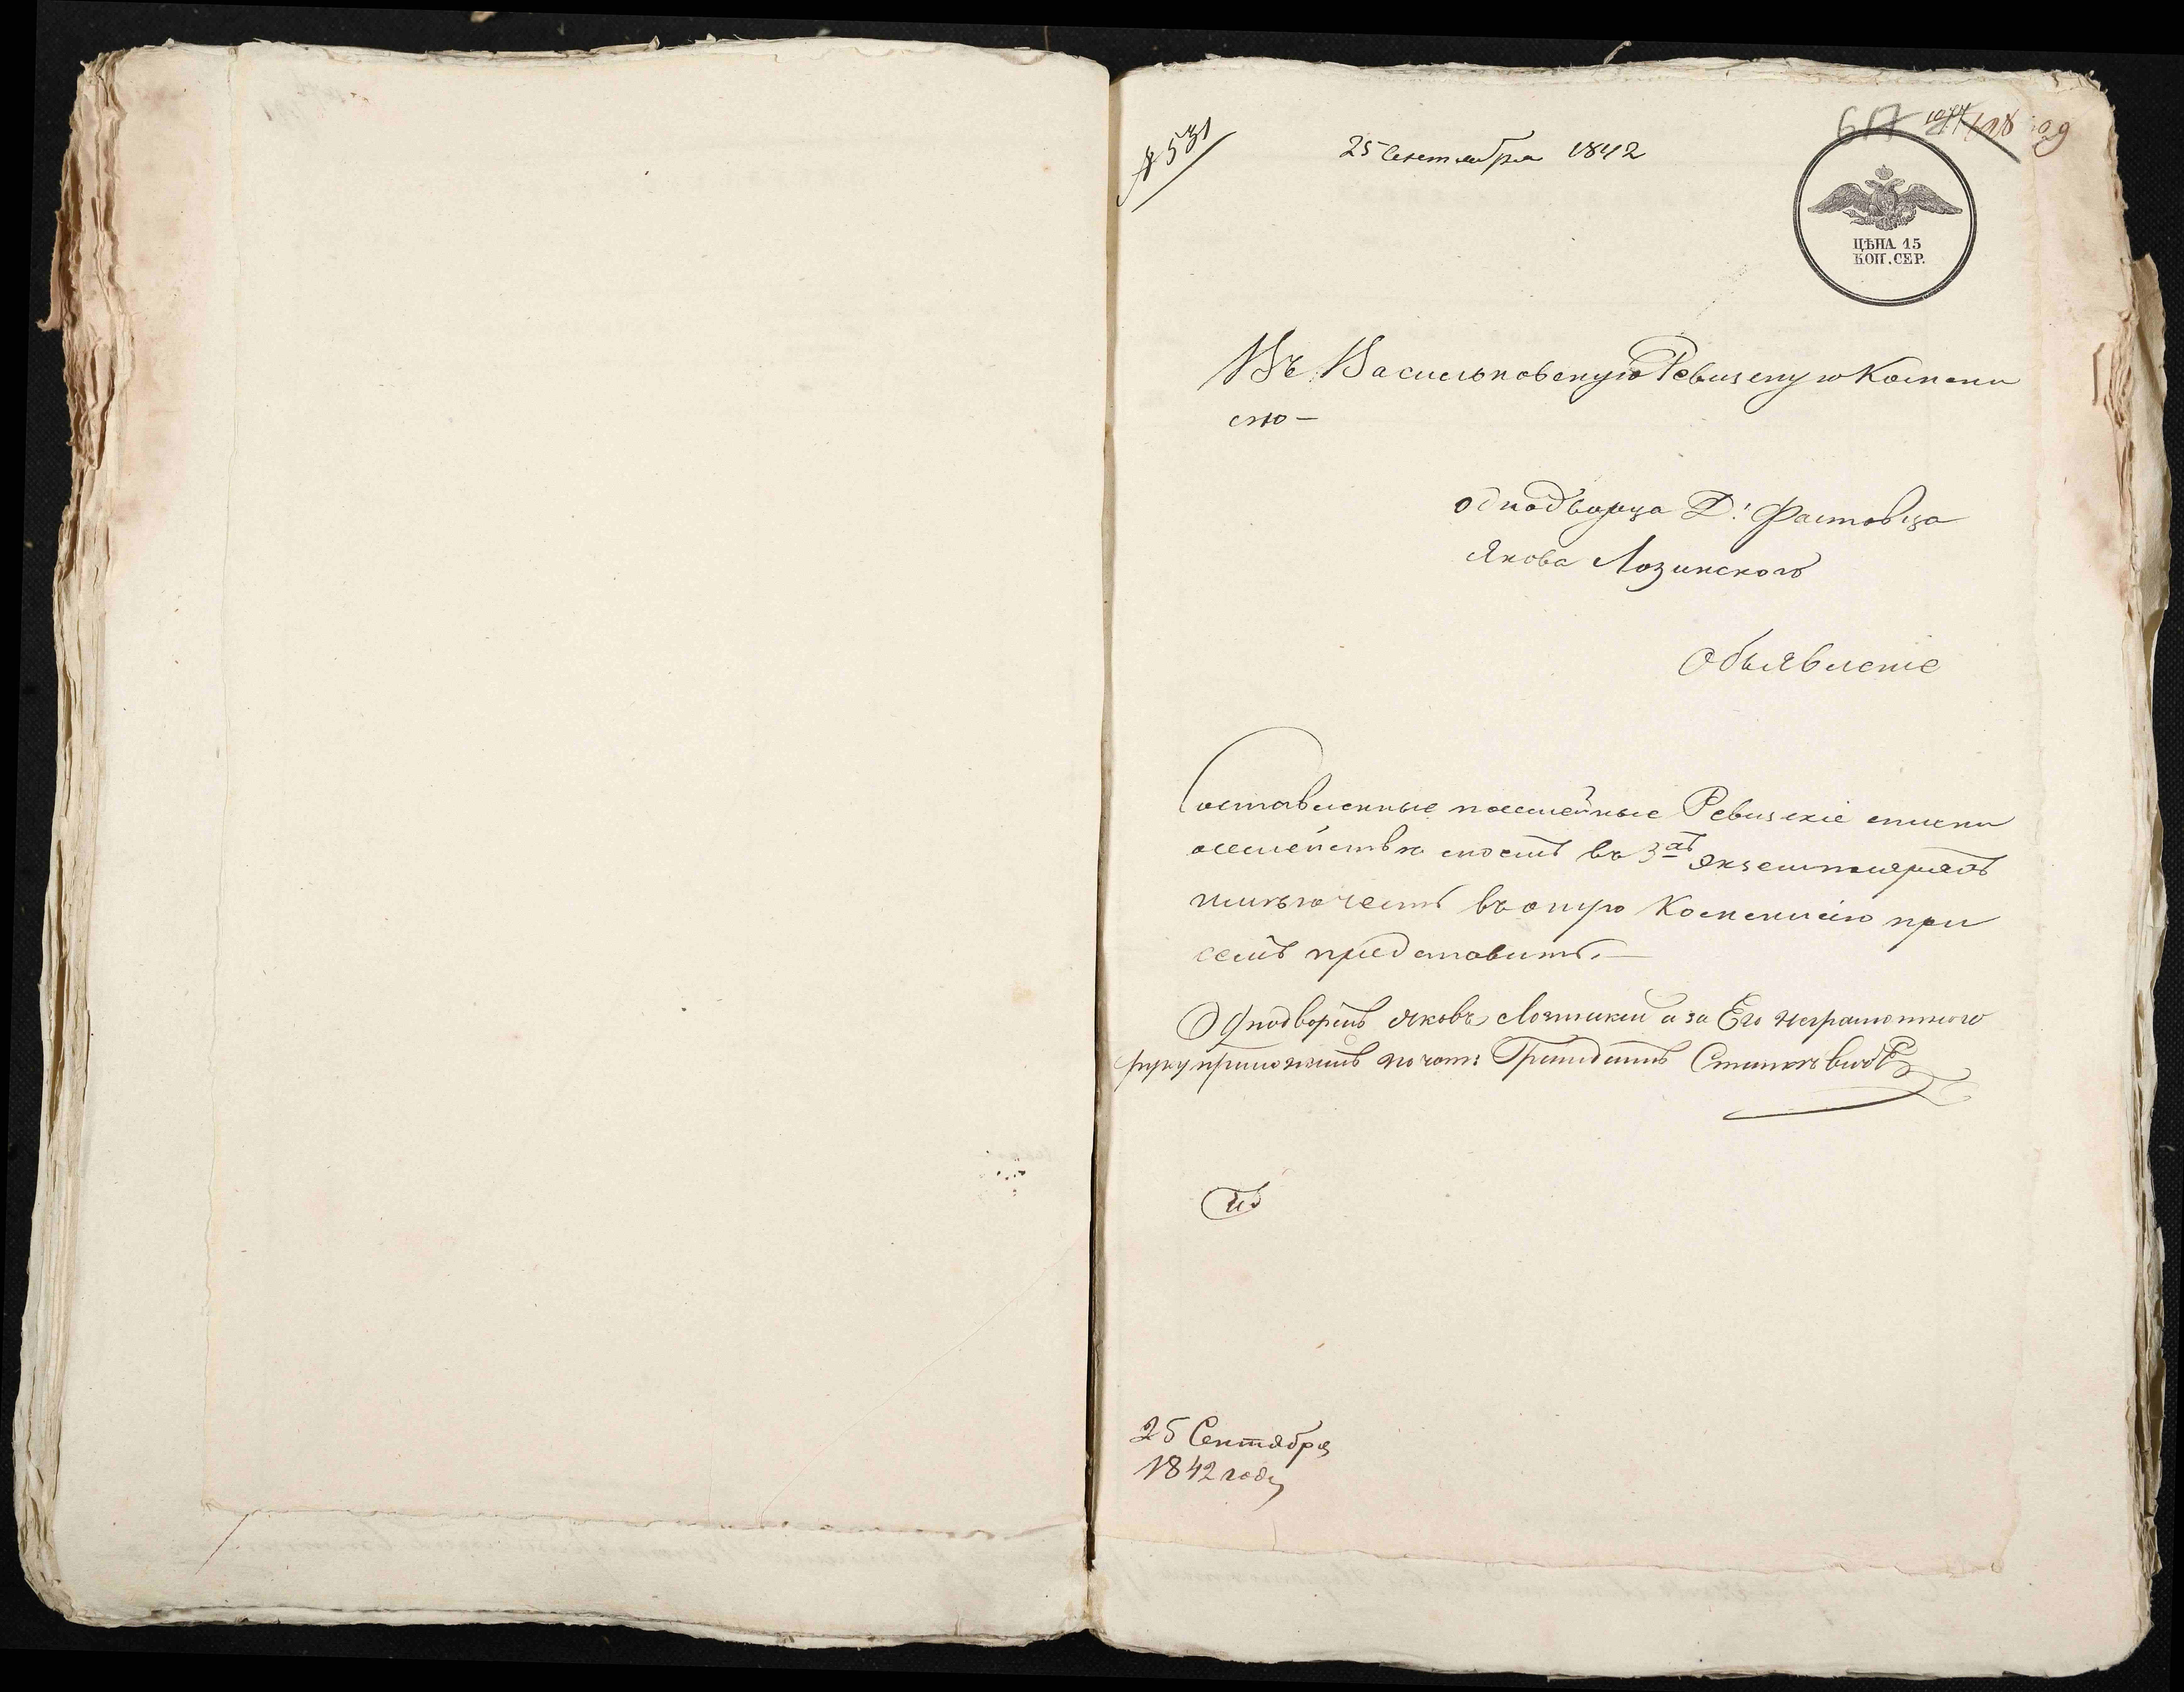 № 531
25 Сентября 1842
617
ЦѢНА 15
КОП. СЕР.
Въ Васильковскую Ревизскую Комми
сію —
однодворца Д. Фастовца
Якова Лозинскаго
Объявленіе
Составленные посемейные Ревизскіе списки
о семействѣ моемъ въ 3хъ экземплярахъ
имѣю честь въ оную Коммисію при
семъ представить. —
Однодворецъ Яковъ Лозинскій а за Его неграмотнаго
руку приложилъ Станкевичъ
25 Сентября
1842 года